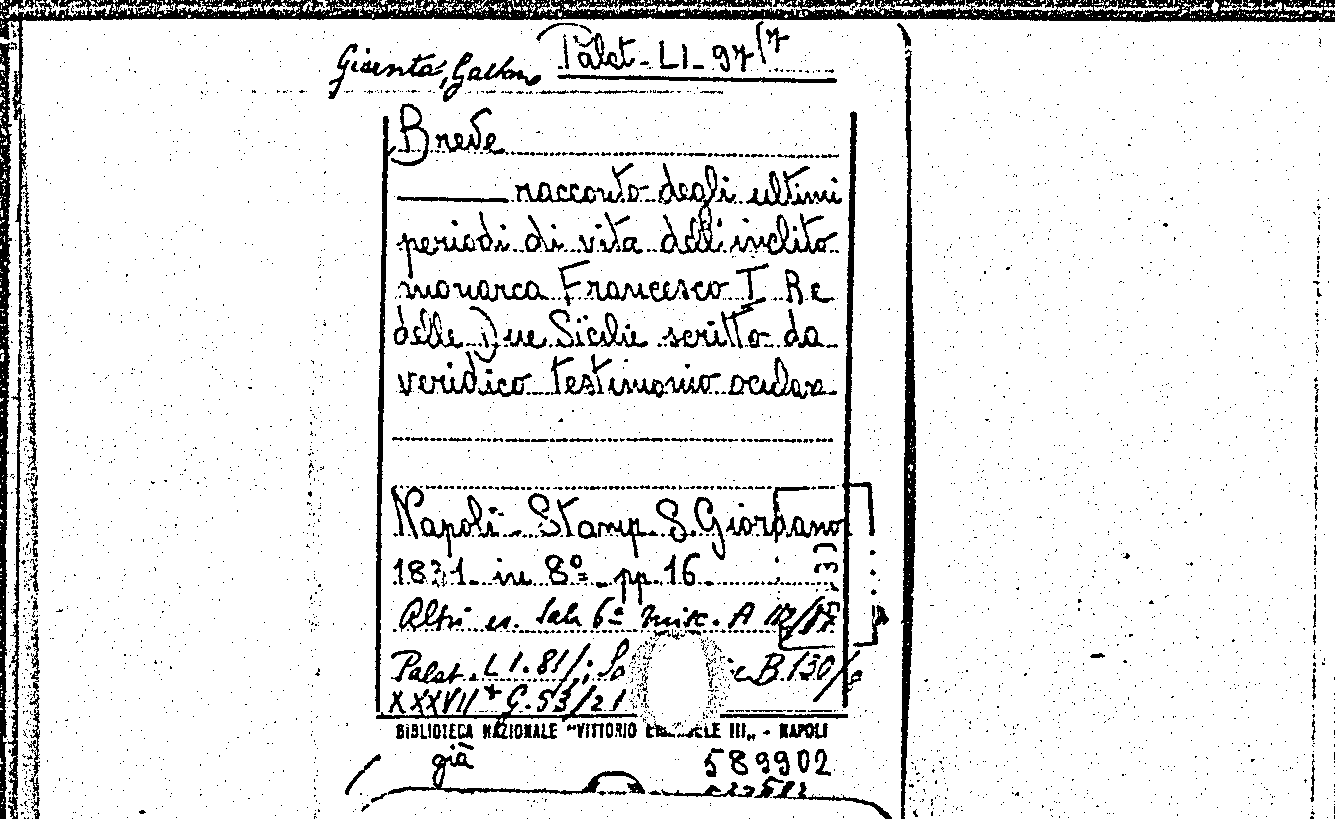 Palat. LI. 97/7
Breve
racconto degli ultimi
periodi di vita dell'inclito
monarca Francesco I Re
delle Due Sicilie scritto da
veridico testimonio oculare
Napoli. Stamp. S. Giordano
1831. in 8º pp. 16.
Altri es. Sala 6ª misc. A
Palat. LI. 81/; B. 130/
XXXVII * G. 53/21
BIBLIOTECA NAZIONALE "VITTORIO EMANUELE III" - NAPOLI
già 589902